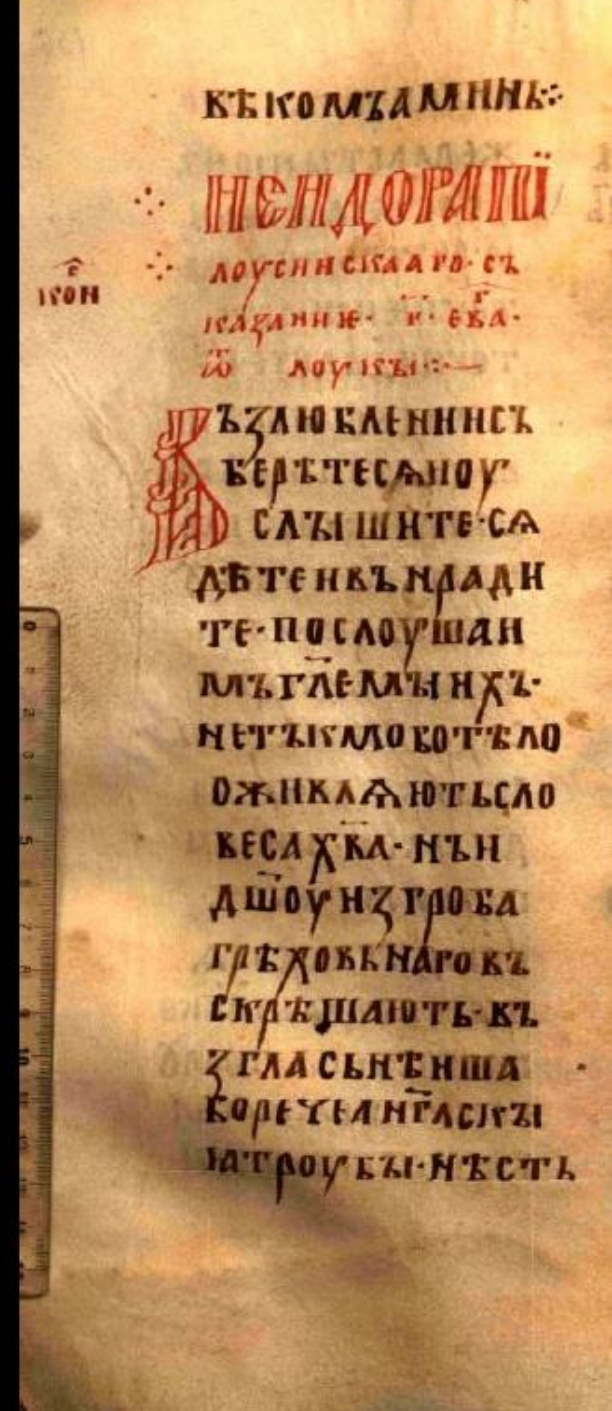 вѣкомъаминь⁘
исидорапи
лоусинскааго·съ
коис
казание·г҃·ева҃г·
ѿ лоукы⁘—
Възлюблениисъ
берѣтесѧноу
слышите·сѧ
дѣтеивънради
те·послоушаи
мъгл҃емыихъ·
нетъкмоботѣло
оживлѧѭтьсло
весах҃ва·нъи
дш҃оуизгроба
грѣховьнаговъ
скрѣшають·въ
згласьнѣиша
боречеанг҃лскы
ꙗтроубы·нѣсть